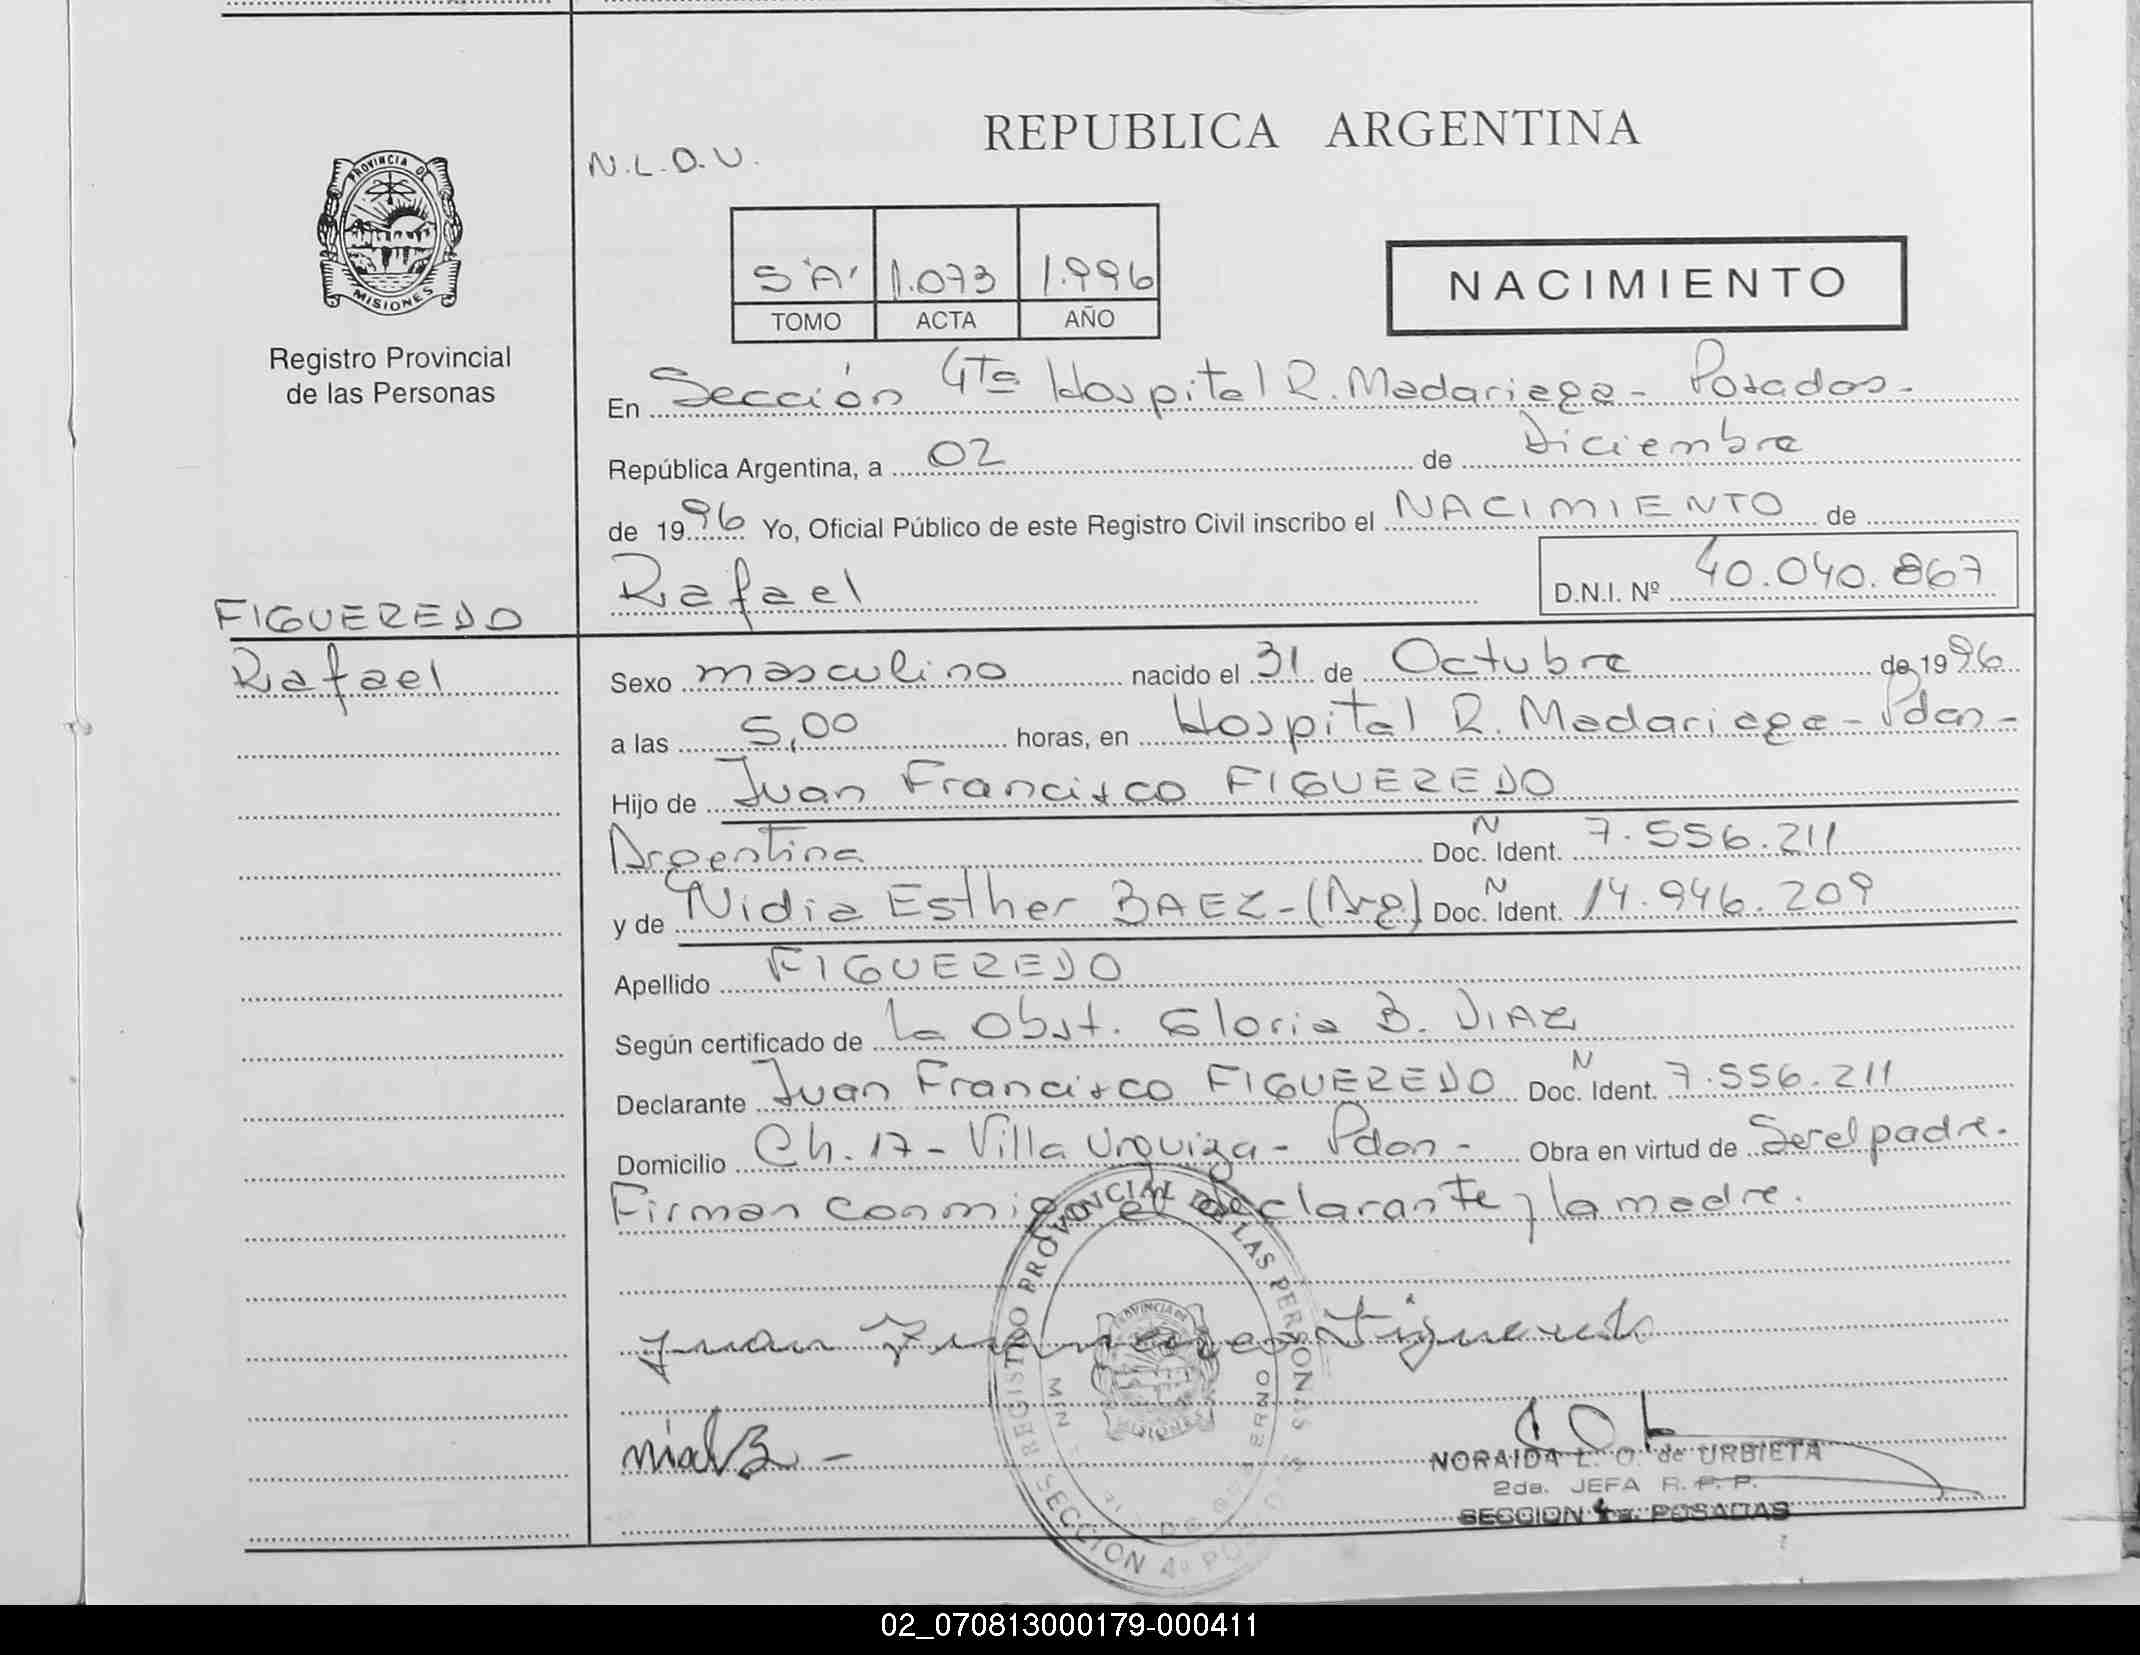 REPUBLICA ARGENTINA
N.L.O.U.
PROVINCIA DE
MISIONES
Registro Provincial
de las Personas
5 "A" 1.073 1.996
TOMO ACTA AÑO
NACIMIENTO
En Sección 4Ta Hospital R. Madariaga - Posadas -
República Argentina, a 02 de Diciembre
de 1996 Yo, Oficial Público de este Registro Civil inscribo el NACIMIENTO de
Rafael D.N.I. Nº 40.040.867
FIGUEREDO
Rafael
Sexo masculino nacido el 31 de Octubre de 1996
a las 5,00 horas, en Hospital R. Madariaga - Pdas -
Hijo de Juan Francisco FIGUEREDO
Argentina Doc. Ñ Ident. 7.556.211
y de Nidia Esther BAEZ - (Arg) Doc. Ñ Ident. 14.946.209
Apellido FIGUEREDO
Según certificado de la Obst. Gloria B. DIAZ
Declarante Juan Francisco FIGUEREDO Doc. Ñ Ident. 7.556.211
Domicilio Ch. 17 - Villa Urquiza - Pdas - Obra en virtud de Ser el padre.
Firman conmigo el declarante y la madre.
REGISTRO PROVINCIAL DE LAS PERSONAS
SECCION 4º
PROVINCIA DE
MISIONES
Juan Francisco Figueredo
NORAIDA L. O. de URBIETA
2da. JEFA R. P. P.
SECCION 4ta. POSADAS
02_070813000179-000411